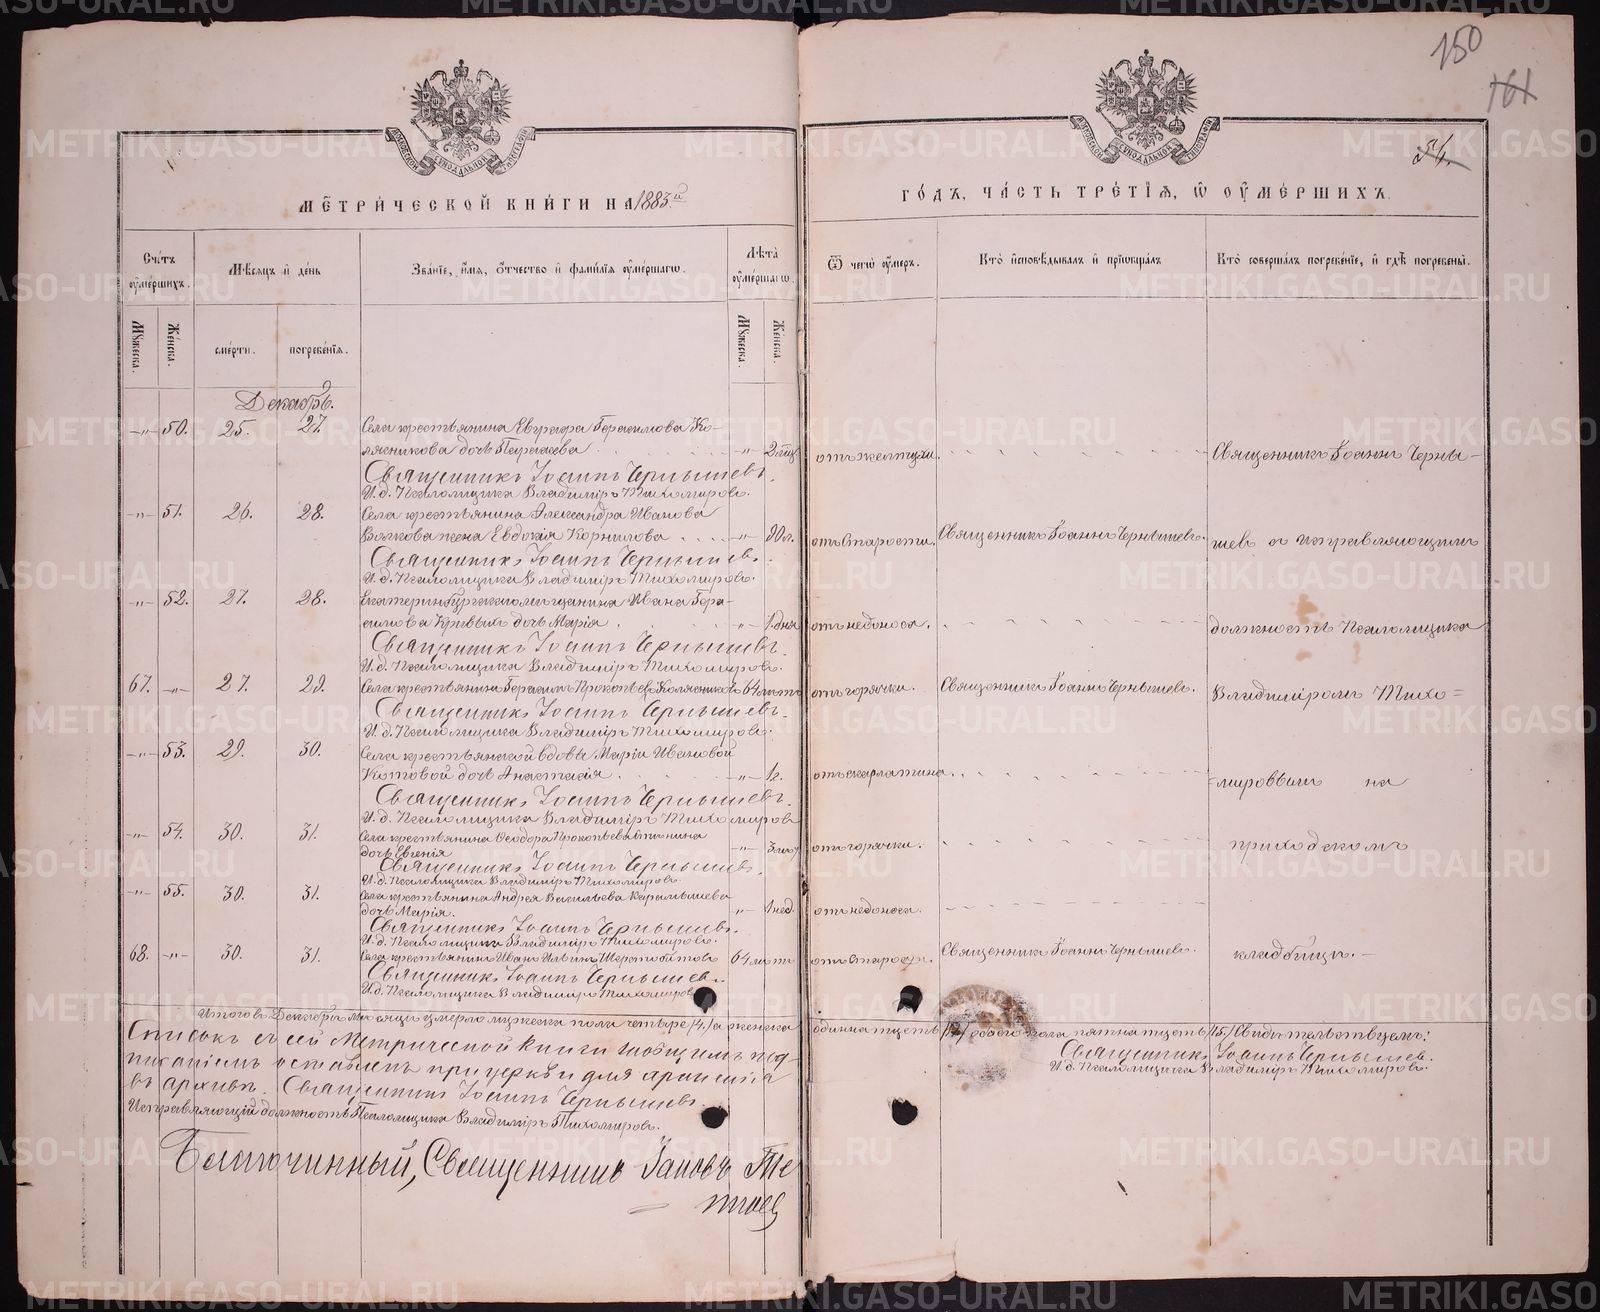 150
161
54.
МОСКОВСКОЙ СѴНОДАЛЬНОЙ ТИПОГРАФІИ
МОСКОВСКОЙ СѴНОДАЛЬНОЙ ТИПОГРАФІИ
МЕТРИЧЕСКОЙ КНИГИ НА 1883й
ГОДЪ, ЧАСТЬ ТРЕТІЯ, Ѡ ОУМЕРШИХЪ.
Счетъ оумершихъ.
Мѣсяцъ и день
Званіе, имя, отчество и фамилія оумершагѡ.
Лѣта оумершагѡ.
Ѿ чегѡ оумеръ.
Кто исповѣдывалъ и прїобщалъ
Кто совершалъ погребеніе, и гдѣ погребены.
Мужеска. Женска. смерти. погребенія. Мужеска. Женска.
Декабрь.
-"- 50. 25. 27. Села крестьянина Евграфа Герасимова Ко-
лясникова дочь -"- 2 мѣс. отъ желтухи. Священникъ Іоаннъ Черны-
Священникъ Іоаннъ Чернышевъ.
И.д. Псаломщика Владиміръ Тихомировъ.
-"- 51. 26. 28. Села крестьянина Александра Иванова
Волкова жена Евдокія Корнилова -"- 90 л. отъ старости. Священникъ Іоаннъ Чернышевъ. шевъ съ исправляющимъ
Священникъ Іоаннъ Чернышевъ.
И.д. Псаломщика Владиміръ Тихомировъ.
-"- 52. 27. 28. Екатеринбургскаго мѣщанина Ивана Гера-
симова Кривыхъ дочь Марія. -"- 1. дня отъ недоноса. должность Псаломщика
Священникъ Іоаннъ Чернышевъ.
И.д. Псаломщика Владиміръ Тихомировъ.
67. -"- 27. 29. Села крестьянинъ Герасимъ Прокопьевъ Колясниковъ 64 лѣтъ отъ горячки. Священникъ Іоаннъ Чернышевъ. Владиміромъ Тихо=
Священникъ Іоаннъ Чернышевъ.
И.д. Псаломщика Владиміръ Тихомировъ.
-"- 53. 29. 30. Села крестьянской вдовы Маріи Ивановой
Котовой дочь Анастасія -"- 1 г. отъ скарлатина. =мировымъ на
Священникъ Іоаннъ Чернышевъ.
И.д. Псаломщика Владиміръ Тихомировъ
-"- 54. 30. 31. Села крестьянина Ѳеодора Прокопьева
дочь Евгенія -"- отъ горячки. приходскомъ
Священникъ Іоаннъ Чернышевъ.
И.д. Псаломщика Владиміръ Тихомировъ.
-"- 55. 30. 31. Села крестьянина Андрея Васильева Карамышева
дочь Марія. -"- 1 нед. отъ недоноса.
Священникъ Іоаннъ Чернышевъ.
И.д. Псаломщика Владиміръ Тихомировъ.
68. -"- 30. 31. Села крестьянинъ Иванъ Ильинъ 64 лѣтъ отъ старости. Священникъ Іоаннъ Чернышевъ. кладбищѣ.-
Священникъ Іоаннъ Чернышевъ.
И.д. Псаломщика Владиміръ Тихомировъ
Итого въ Декабрѣ мѣсяцѣ умерло мужеска пола четыре /4/ а женска одинна обоего пола пятна /15/ Свидѣтельствуемъ:
Священникъ Іоаннъ Чернышевъ.
И.д. Псаломщика Владиміръ Тихомировъ.
Списокъ съ сей Метрической Книги за общимъ под-
писаніемъ оставленъ при церкви для храненія
въ архивѣ. Священникъ Іоаннъ Чернышевъ.
Исправляющій должность Псаломщика Владиміръ Тихомировъ.
Благочинный, Священникъ Іаковъ
METRIKI.GASO-URAL.RU